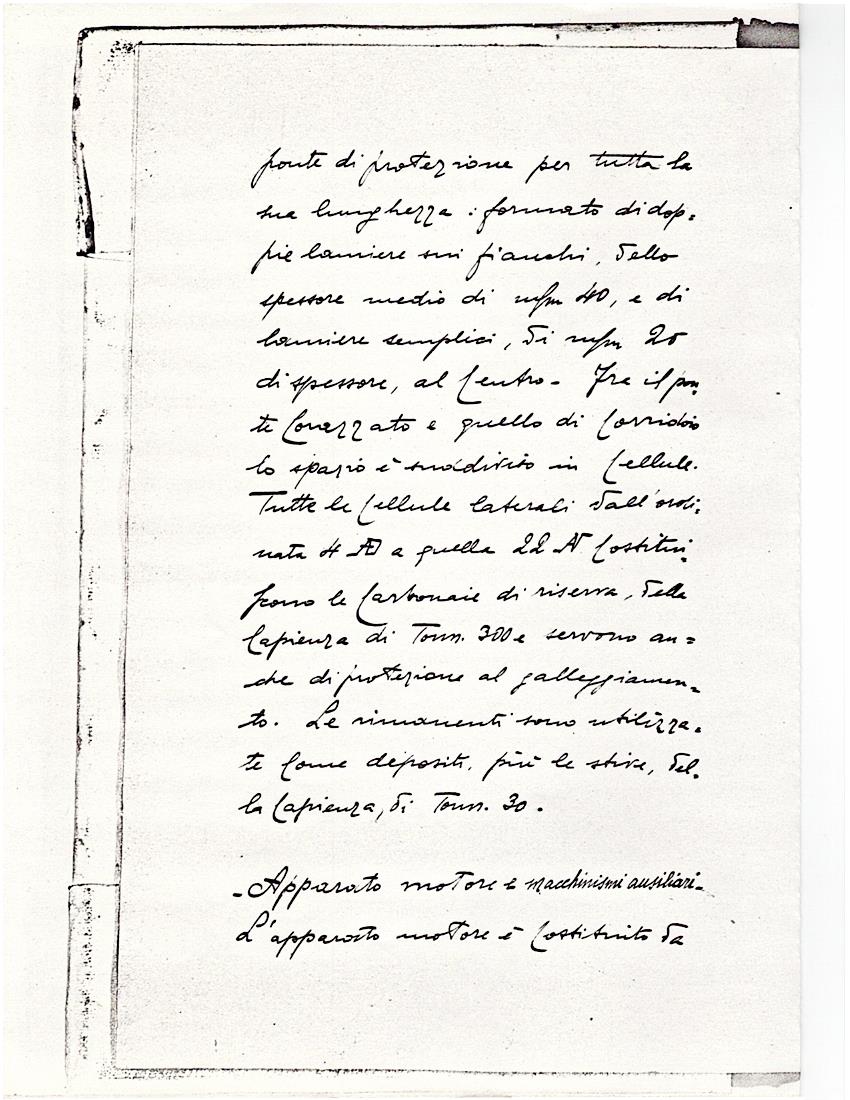 ponte di protezione per tutta la
sua lunghezza : formato di dop=
pie lamiere sui fianchi, dello
spessore medio di m/m 40, e di
lamiere semplici, di m/m 20
di spessore, al centro - Fra il pon=
te corazzato e quello di corridoio
lo spazio è suddiviso in cellule.
Tutte le cellule laterali dall'ordi=
nata 4 AD a quella 22 AV costitui=
scono le carbonaie di riserva, della
capienza di Tonn. 300 e servono an=
che di protezione al galleggiamen=
to. Le rimanenti sono utilizza=
te come depositi, più le stive, del=
la capienza, di Tonn. 30.
- Apparato motore e macchinismi ausiliari -
L'apparato motore è costituito da